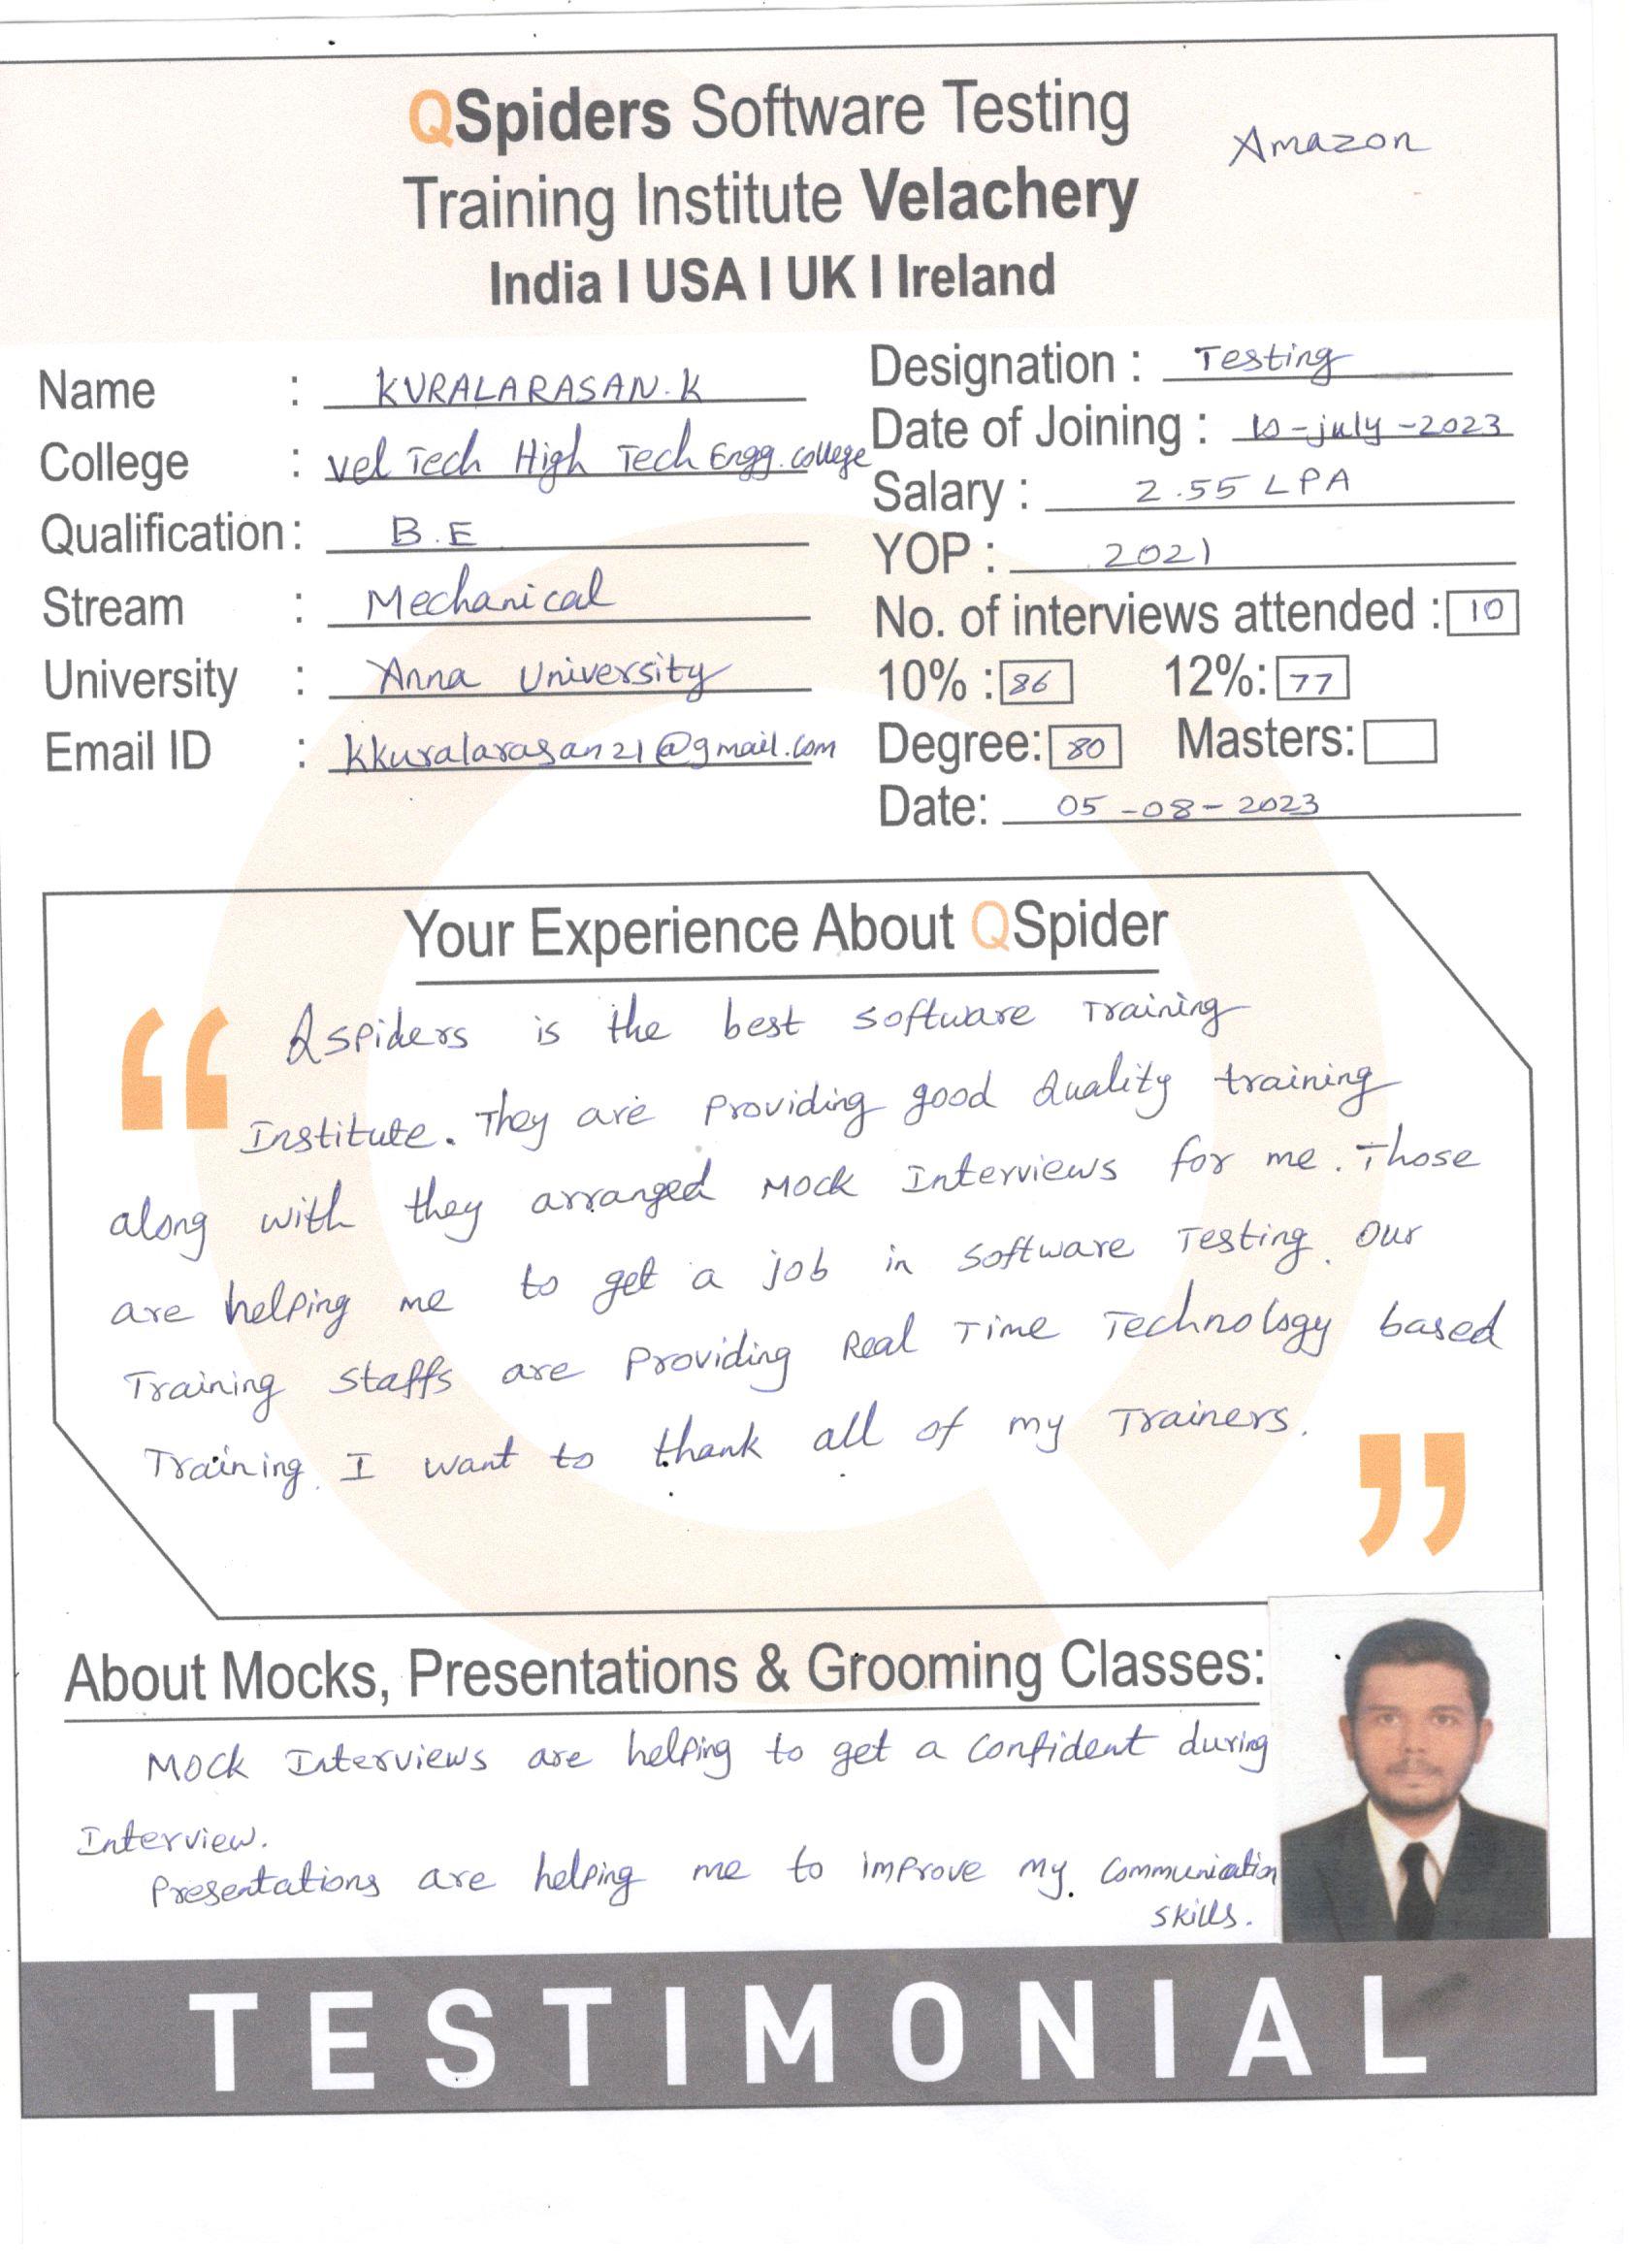 QSpiders Software Testing
Amazon
Training Institute Velachery
India I USA I UK I Ireland
Name : KURALARASAN.K
College : Vel Tech High Tech Engg. College
Qualification : B.E
Stream : Mechanical
University : Anna University
Email ID : kkuralarasan21@gmail.com
Designation : Testing
Date of Joining : 10-july-2023
Salary : 2.55 LPA
YOP : 2021
No. of interviews attended : 10
10% : 86 12%: 77
Degree: 80 Masters:
Date: 05-08-2023
Your Experience About QSpider
“ Qspiders is the best software Training
Institute. They are Providing good Quality training
along with they arranged Mock Interviews for me. Those
are helping me to get a job in Software Testing. Our
Training Staffs are Providing Real Time Technology based
Training. I want to thank all of my Trainers. ”
About Mocks, Presentations & Grooming Classes:
Mock Interviews are helping to get a Confident during
Interview.
Presentations are helping me to improve my Communication
skills.
TESTIMONIAL